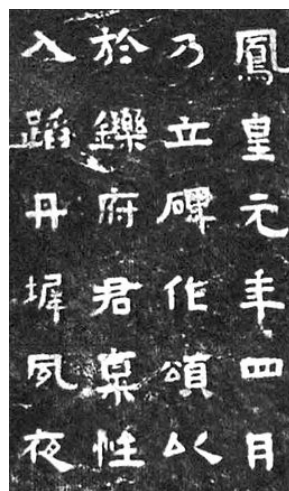 鳳皇元年四月
乃立碑作頌以
於鑠府君稟性
入蹈丹墀夙夜